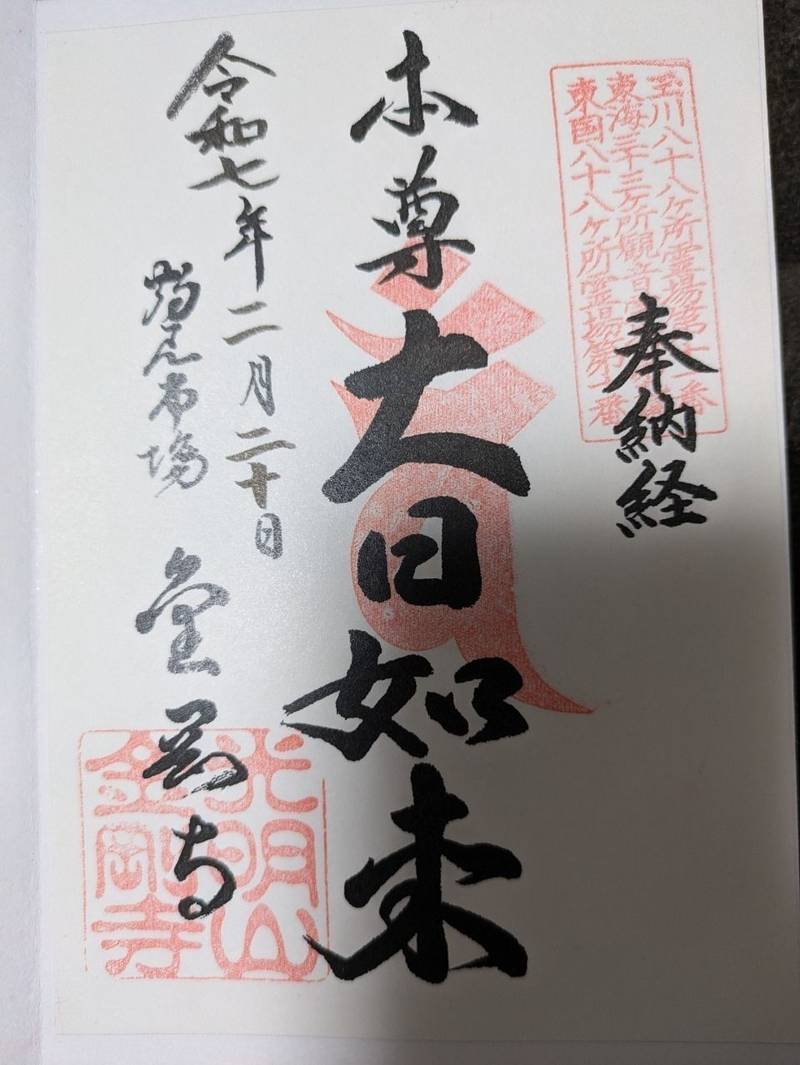 玉川八十八ヶ所霊場第十一番
東海三十三ヶ所観音
東国八十八ヶ所霊場第十番
奉納経
本尊 大日如来
令和七年二月二十日
鶴見市場 金剛寺
光明山
金剛寺